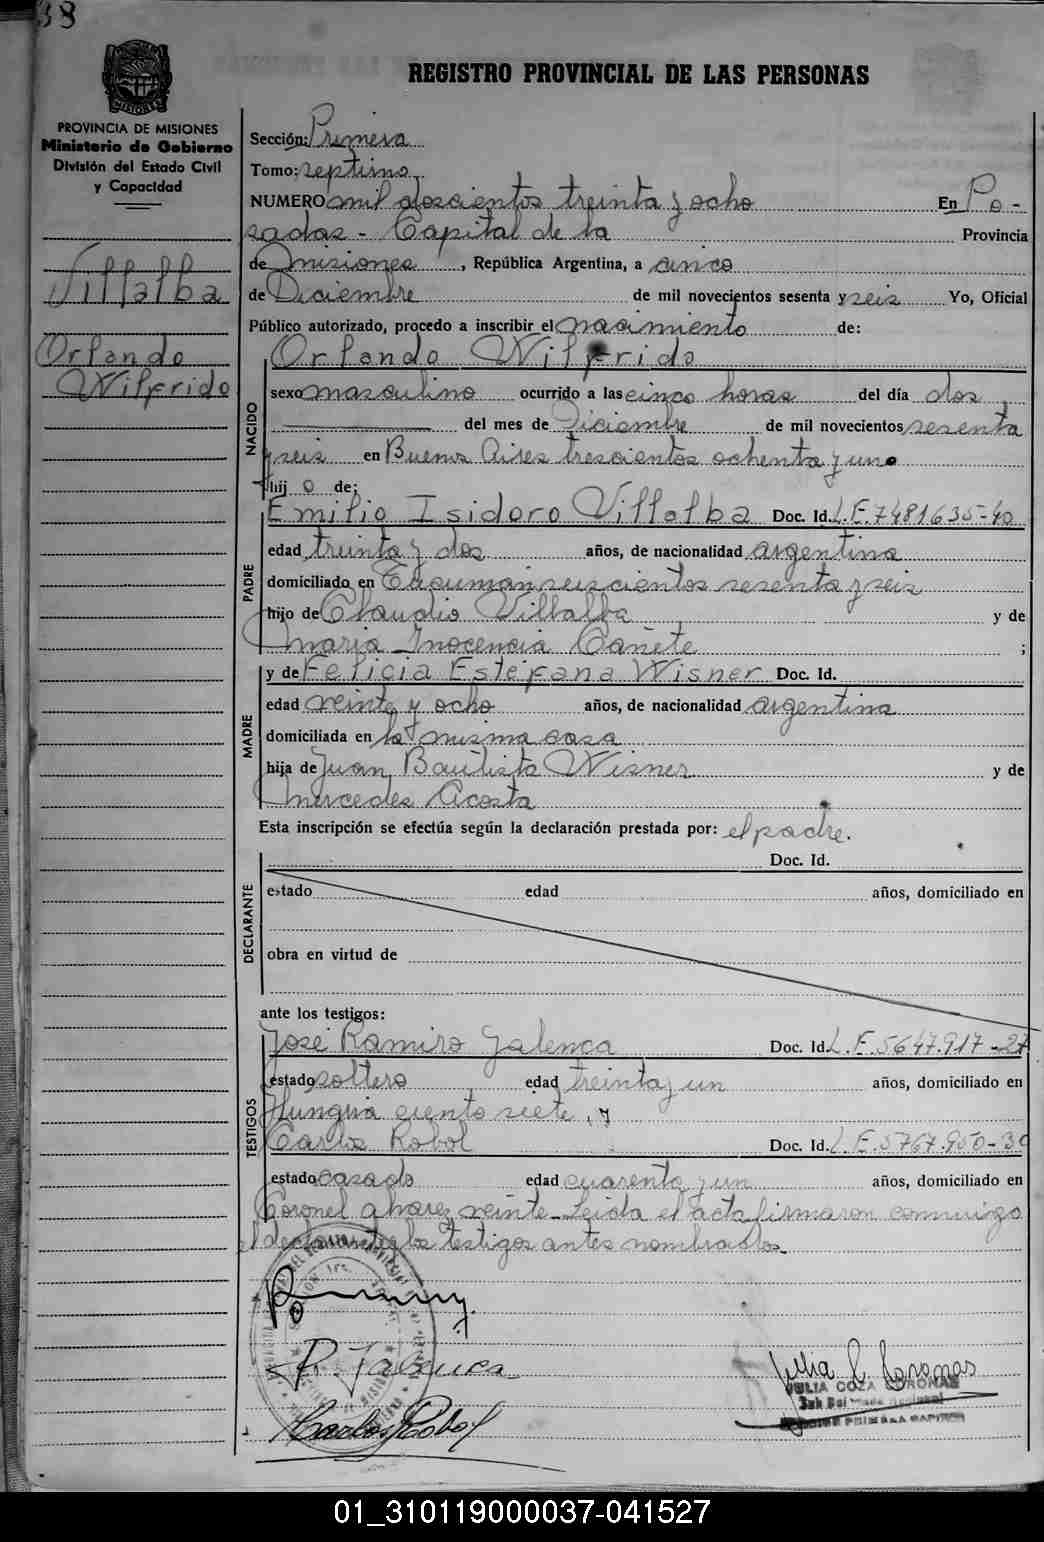 38
REGISTRO PROVINCIAL DE LAS PERSONAS
MISIONES
PROVINCIA DE MISIONES
Ministerio de Gobierno
División del Estado Civil
y Capacidad
Villalba
Orlando
Wilfrido
Sección: Primera
Tomo: septimo
NUMERO mil doscientos treinta y ocho En Po-
sadas - Capital de la Provincia
de misiones, República Argentina, a cinco
de Diciembre de mil novecientos sesenta y seis Yo, Oficial
Público autorizado, procedo a inscribir el nacimiento de:
Orlando Wilfrido
NACIDO
sexo masculino ocurrido a las cinco horas del día dos
del mes de Diciembre de mil novecientos sesenta
y seis en Buenos Aires trescientos ochenta y uno
hijo de:
PADRE
Emilio Isidoro Villalba Doc. Id. L.E. 7481635-40
edad treinta y dos años, de nacionalidad argentina
domiciliado en Tucumán seiscientos sesenta y seis
hijo de Claudio Villalba y de
maria Inocencia Cañete ;
MADRE
y de Felicia Estefana Wisner Doc. Id.
edad veinte y ocho años, de nacionalidad argentina
domiciliada en la misma casa
hija de Juan Bautista Wisner y de
mercedes Acosta
Esta inscripción se efectúa según la declaración prestada por: el padre.
DECLARANTE
Doc. Id.
estado edad años, domiciliado en
obra en virtud de
ante los testigos:
TESTIGOS
José Ramiro Doc. Id. L.E. 5647.917-27
estado soltero edad treinta y un años, domiciliado en
Hungria ciento siete, y
Carlos Robol Doc. Id. L.E. 5767.950-30
estado casado edad cuarenta y un años, domiciliado en
Coronel alvarez veinte - Leida el acta firmaron conmigo
el declarante y los testigos antes nombrados.
Carlos Robol
JULIA COZA CORONAS
01_310119000037-041527